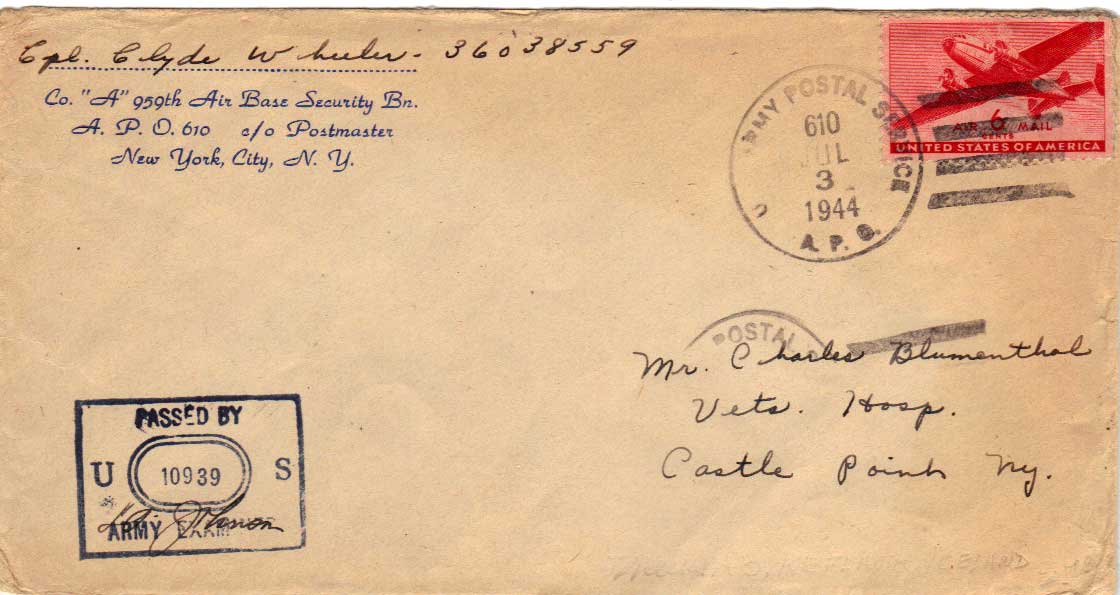 Cpl. Clyde Wheeler - 36038559
Co. "A" 959th Air Base Security Bn.
A. P. O. 610 c/o Postmaster
New York, City, N. Y.
ARMY POSTAL SERVICE
610
JUL
3
1944
A. P. O.
AIR 6 MAIL
CENTS
UNITED STATES OF AMERICA
POSTAL
Mr. Charles Blumenthal
Vets. Hosp.
Castle Point Ny.
PASSED BY
U 10939 S
ARMY